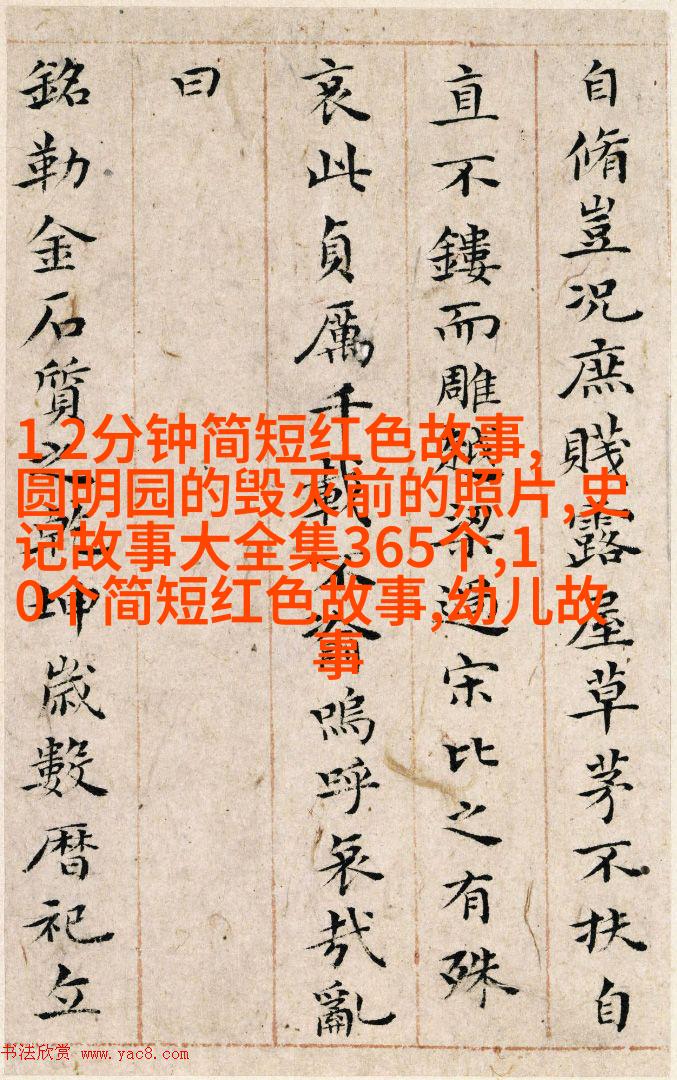 自脩豈況庶賤露屋草茅不扶自
直不鏤而雕越梁過宋比之有殊
哀此貞厲千載不渝嗚呼哀哉亂
曰
銘勒金石質之乾坤歲數曆祀立
1,2分钟简短红色故事,
圆明园的毁灭前的照片,史
记故事大全集365个,1
0个简短红色故事,幼儿故
事
书法欣赏 www.yac8.com